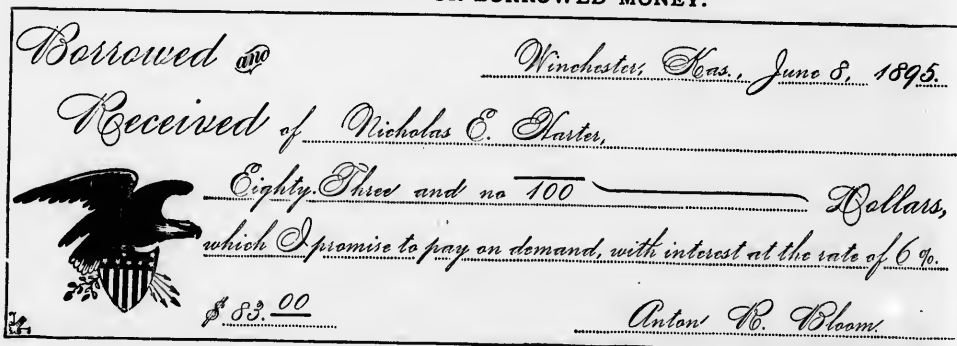 FOR BORROWED MONEY.
Borrowed and
Winchester, Kas., June 8, 1895.
Received of Nicholas E. Harter,
Eighty-Three and no/100 Dollars,
which I promise to pay on demand, with interest at the rate of 6 %.
$ 83.00
Anton R. Bloom.